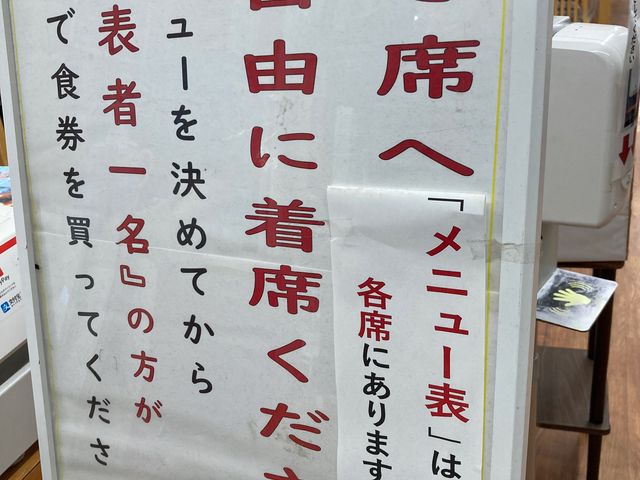 席へ
「メニュー表」は
各席にあります
自由に着席くださ
ューを決めてから
表者一名』の方が
で食券を買ってくださ